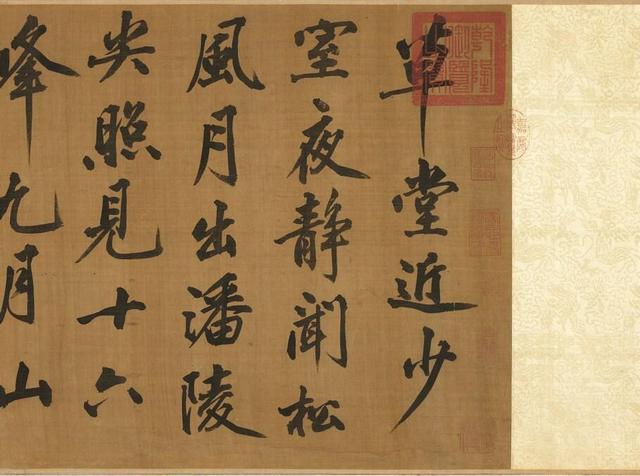 草堂近少
室夜静聞松
風月出潘陵
尖照見十六
峰九月山